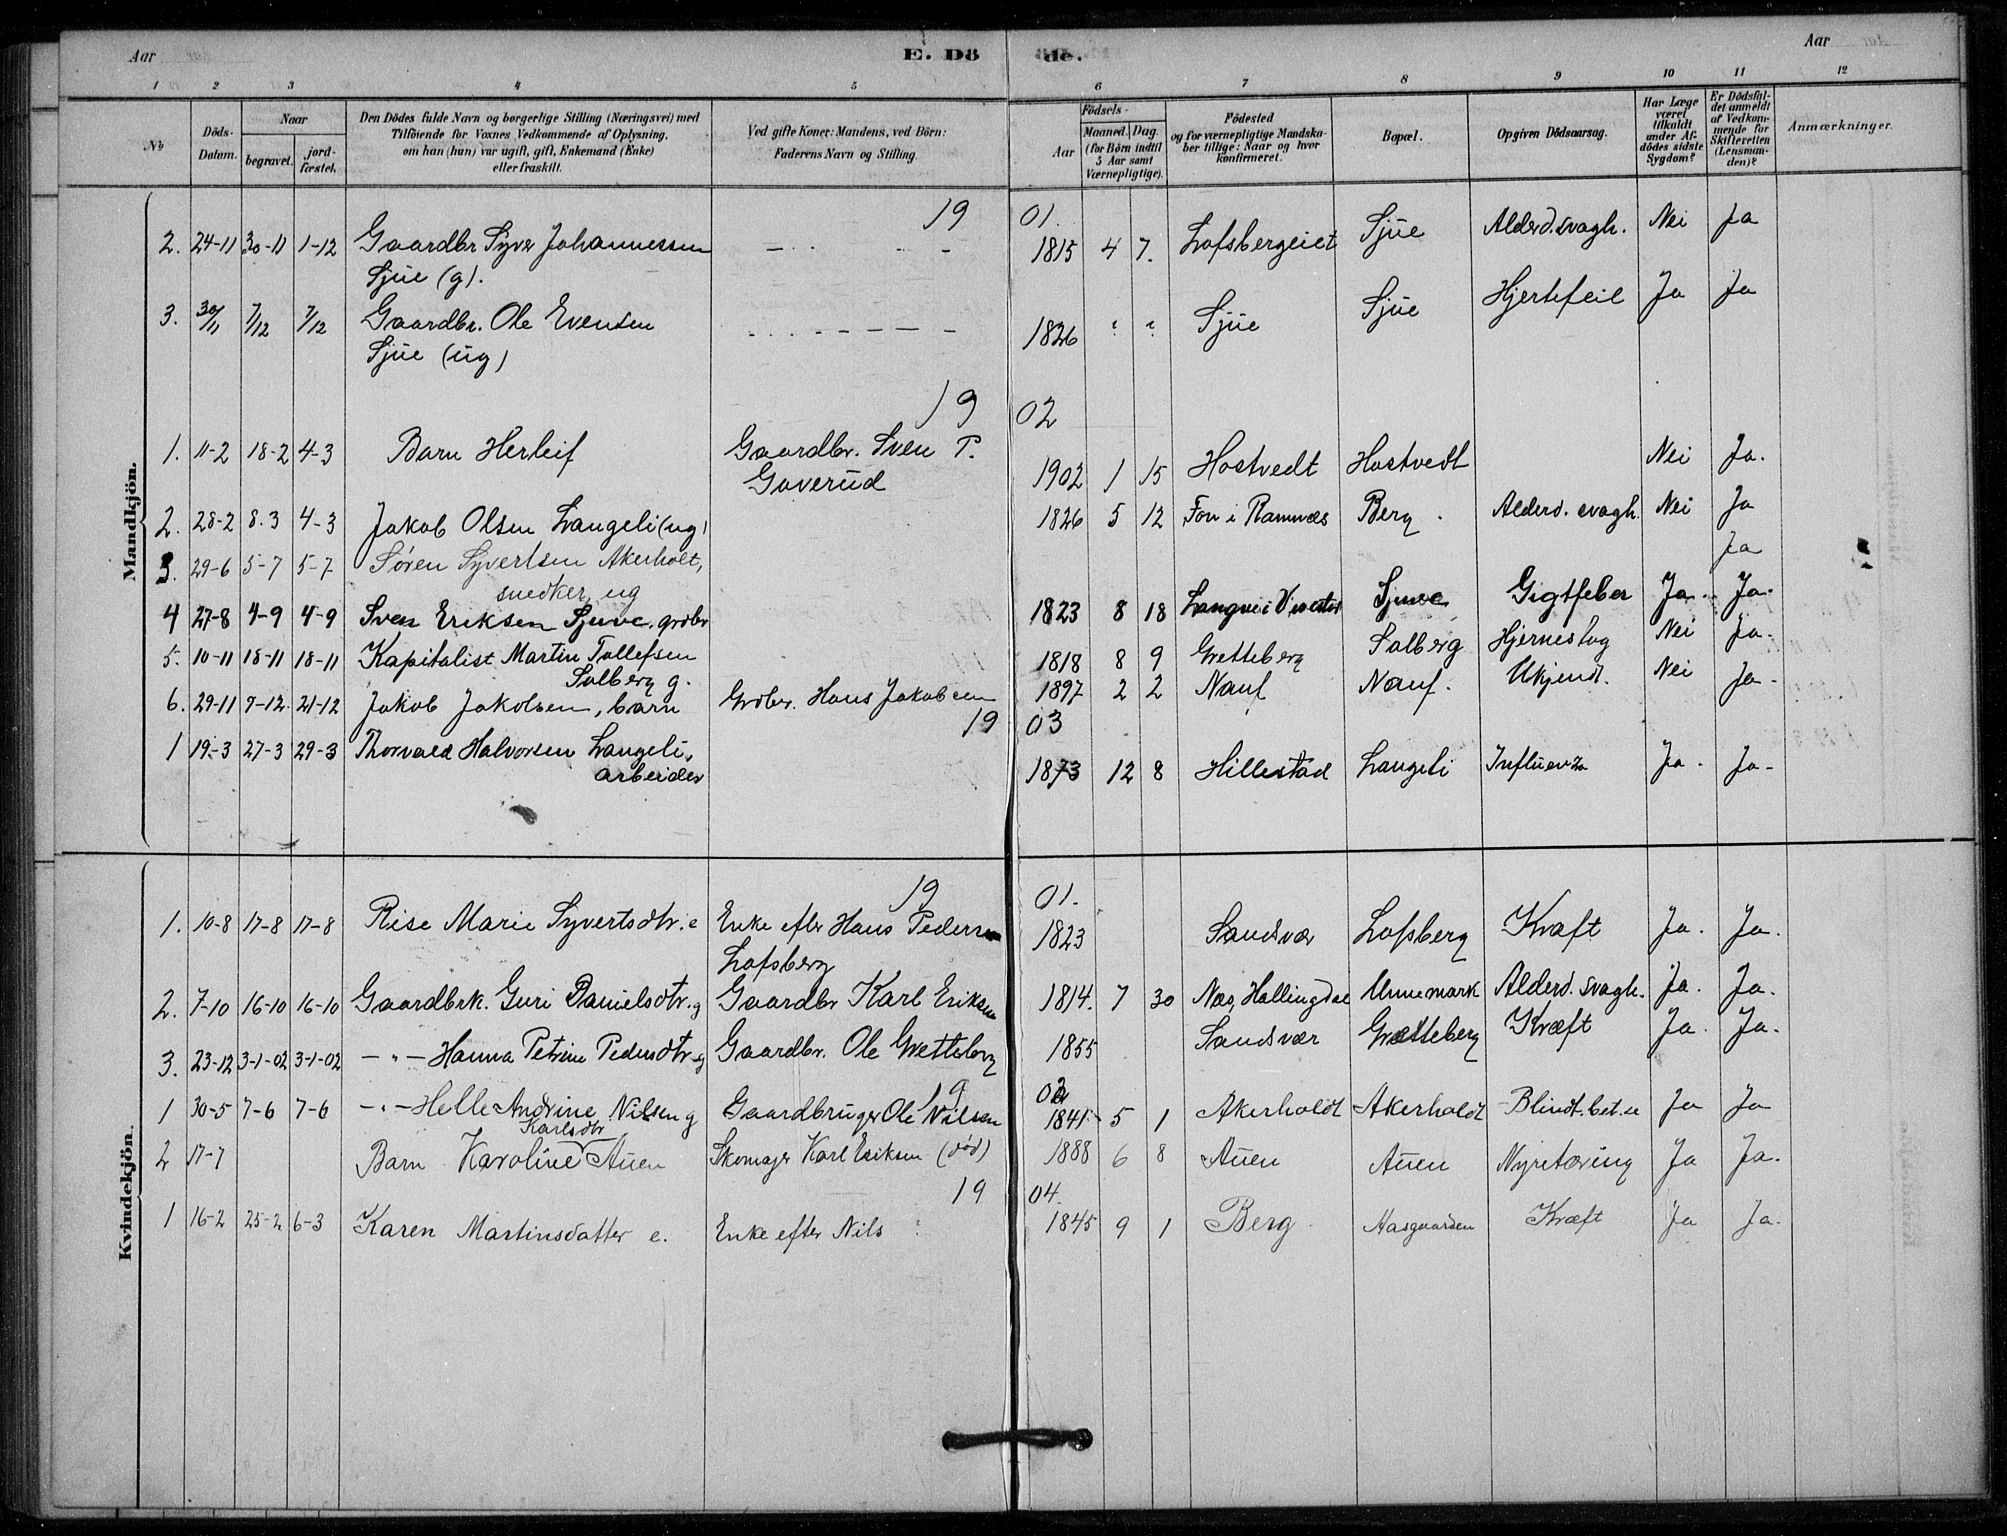 Aar E. Dö de. Aar
1 2 3 4 5 6 7 8 9 10 11 12
No
Döds-Datum.
Naar
begravet.
jord-fæstet.
Den Dödes fulde Navn og borgerlige Stilling (Næringsvei) med
Tilföiende for Voxnes Vedkommende af Oplysning,
om han (hun) var ugift, gift, Enkemand (Enke)
eller fraskilt.
Ved gifte Koner: Mandens, ved Börn:
Faderens Navn og Stilling.
Födsels-
Aar
Maaned. Dag.
(for Börn indtil
5 Aar samt
Værnepligtige).
Födested
og for værnepligtige Mandska-
ber tillige: Naar og hvor
konfirmeret.
Bopæl.
Opgiven Dödsaarsag.
Har Læge
været
tilkaldt
under Af-
dödes sidste
Sygdom?
Er Dödsfal-
det anmeldt
af Vedkom-
mende for
Skifteretten
(Lensman-
den)?
Anmærkninger.
Mandkjön.
19 01.
2. 24-11 30-11 1-12 Gaardbr Syver Johannessen 1815 4 7. Lofsbergeiet Sjue Alderd.svagh. Nei Ja
Sjue (g).
3. 30/11 7/12 7/12 Gaardbr. Ole Evensen 1826 " " Sjue Sjue Hjertefeil Ja Ja
Sjue (ug)
19 02
1. 11-2 18-2 4-3 Barn Herleif Gaardbr. Sven P. 1902 1 15 Hostvedt Hostvedt Nei Ja.
Goverud
2. 28-2 8.3 4-3 Jakob Olsen Langeli (ug) 1826 5 12 Fon i Ramnæs Berg Alderd. svagh. Nei Ja
3. 29-6 5-7 5-7 Søren Syvertsen Akerholt, Ja
snedker, ug
4 27-8 4-9 4-9 Sven Eriksen Sjuve, grdbr 1823 8 18 Sjuve Gigtfeber Ja. Ja.
5. 10-11 18-11 18-11 Kapitalist Martin Tollefsen 1818 8 9 Gretteberg Solberg Hjerneslag Nei Ja.
Solberg g.
6. 29-11 9-12 21-12 Jakob Jakobsen, barn Grdbr. Hans Jakobsen 1897 2 2 Nauf Nauf. Ukjend. Nei Ja.
19 03
1 19-3 27-3 29-3 Thorvald Halvorsen Langeli, 1873 12 8 Hillestad Langeli Influenza Ja. Ja.
arbeider
Kvindekjön.
19 01.
1. 10-8 17-8 17-8 Rise Marie Syvertsdtr. e Enke efter Hans Pedersen 1823 Sandsvær Lofsberg Kræft Ja. Ja.
Lofsberg
2. 7-10 16-10 16-10 Gaardbrk. Guri Danielsdtr. g Gaardbr Karl Eriksen 1814. 7 30 Næs, Hallingdal Unnemark Alderd. svagh. Ja. Ja.
3. 23-12 3-1-02 3-1-02 -"- Hanna Petrine Pedersdtr g Gaardbr. Ole Gretteberg 1855 Sandsvær Grætteberg Kræft Ja. Ja.
19 02
1 30-5 7-6 7-6 -"- Helle Andrine Nilsen g Gaardbruger Ole Nilsen 1841 5 1 Akerholdt Akerholdt Blindt.bet.se Ja Ja
Karlsdtr
2 17-7 Barn Karoline Auen Skomager Karl Eriksen (død) 1888 6 8 Auen Auen Nyretæring Ja Ja.
19 04.
1 16-2 25-2 6-3 Karen Martinsdatter e. Enke efter Nils 1845 9 1 Berg Aasgaarden Kræft Ja Ja.